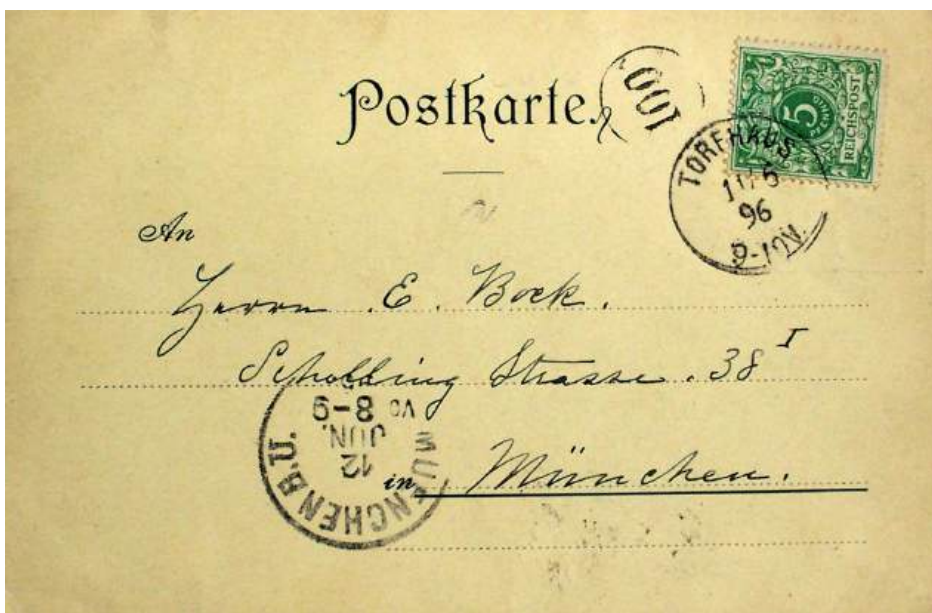 Postkarte.
100
5
REICHSPOST
TORFHAUS
11/6
96
9-10V.
An
Herrn E. Bock.
Schelling Strasse. 38 I
in München.
MUENCHEN B.U.
12
JUN.
VO 8-9